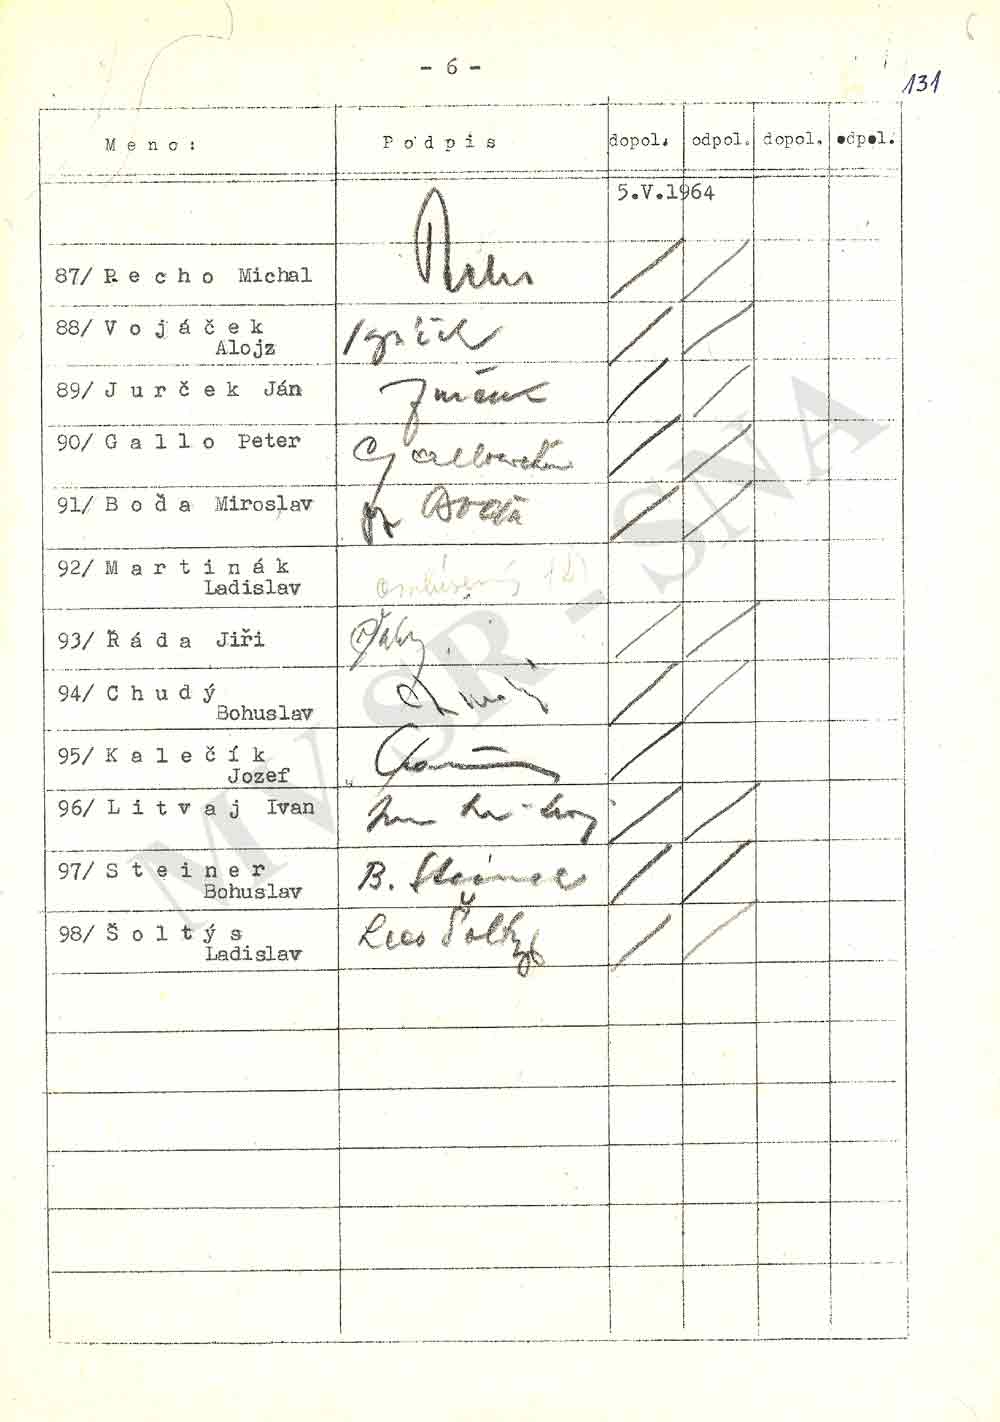 - 6 -
131
Meno: Podpis dopol. odpol. dopol. odpol.
5.V.1964
87/ Recho Michal
88/ Vojáček
Alojz
89/ Jurček Ján
90/ Gallo Peter
91/ Boďa Miroslav
92/ Martinák
Ladislav
93/ Řáda Jiří
94/ Chudý
Bohuslav
95/ Kalečík
Jozef
96/ Litvaj Ivan
97/ Steiner B. Steiner
Bohuslav
98/ Šoltýs
Ladislav
MV SR - SNA